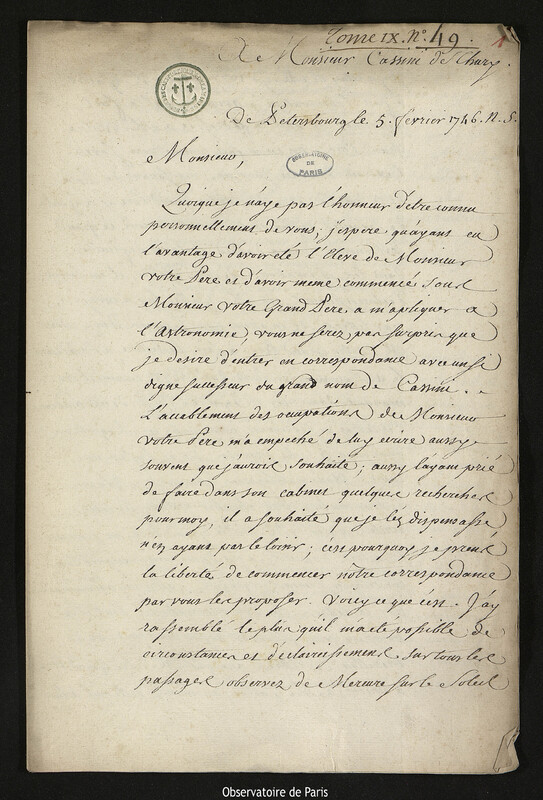 Tome IX. N.° 49.
1
A Monsieur Cassini de Thury.
De Petersbourg le 5. fevrier 1746. N. S.
OBSERVATOIRE DE PARIS
Monsieur,
Quoique je n'aye pas l'honneur d'etre connu
personnellement de vous; j'espere qu'ayant eu
l'avantage d'avoir eté l'Eleve de Monsieur
votre Pere et d'avoir meme commencé sous
Monsieur votre Grand Pere a m'apliquer a
l'Astronomie, vous ne serez pas surpris que
je desire d'entrer en correspondance avec un si
digne successeur du grand nom de Cassini.
L'accablement des ocupations de Monsieur
votre Pere m'a empeché de luy ecrire aussy
souvent que j'aurois souhaité; aussy l'ayant prié
de faire dans son cabinet quelques recherches
pour moy, il a souhaité que je l'en dispensasse
n'en ayant pas le loisir; c'est pourquoy je prens
la liberté de commencer nôtre correspondance
par vous les proposer. Voicy ce que c'est. J'ay
rassemblé le plus qu'il m'a eté possible de
circonstances et d'eclaircissemens sur tous les
passages observez de Mercure sur le Soleil
Observatoire de Paris